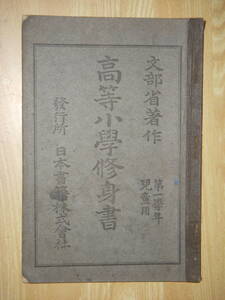 文部省著作
第一學年
兒童用
高等小學修身書
發行所 日本書籍株式會社